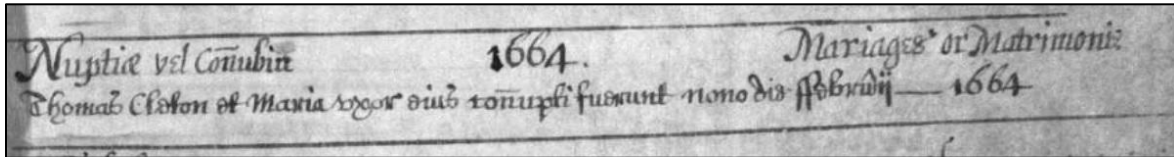 Nuptiæ vel Coñubia 1664. Mariages or Matrimonie
Thomas Cleton et Maria uxor eius coñupti fuerunt nono die ffebruarij — 1664